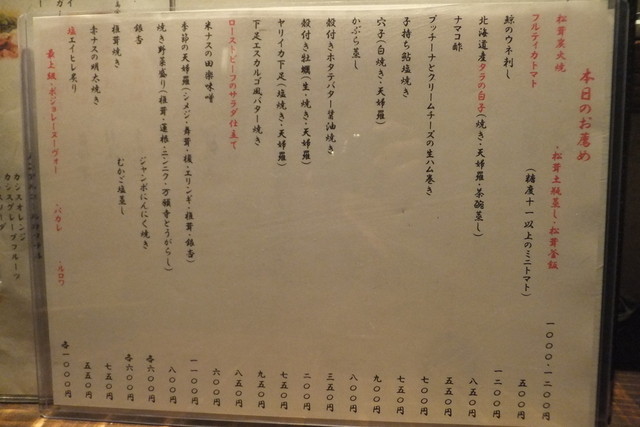 本日のお薦め
松茸炭火焼 ・松茸土瓶蒸し・松茸釜飯 一〇〇〇・一二〇〇円
フルティカトマト (糖度十一以上のミニトマト) 五〇〇円
鯨のウネ刺し 一二〇〇円
北海道産タラの白子(焼き・天婦羅・茶碗蒸し) 八五〇円
ナマコ酢 五五〇円
ブッラーナとクリームチーズの生ハム巻き 七〇〇円
子持ち鮎塩焼き 七五〇円
穴子(白焼き・天婦羅) 九〇〇円
かぶら蒸し 八〇〇円
殻付きホタテバター醤油焼き 三五〇円
殻付き牡蠣(生・焼き・天婦羅) 五〇〇円
ヤリイカ下足(塩焼き・天婦羅) 七五〇円
下足エスカルゴ風バター焼き 九五〇円
ローストビーフのサラダ仕立て 八五〇円
米ナスの田楽味噌 六〇〇円
季節の天婦羅(シメジ・舞茸・榎・エリンギ・椎茸・銀杏) 一一〇〇円
焼き野菜盛り(椎茸・蓮根・ニンニク・万願寺とうがらし) 八〇〇円
銀杏 ジャンボにんにく焼き 各六〇〇円
椎茸焼き むかご塩蒸し 各六〇〇円
赤ナスの明太焼き 七五〇円
塩エイヒレ炙り 五五〇円
最上級・ボジョレーヌーヴォー ・パカレ ・ルロワ 各一〇〇〇円
カシスオレンジ
カシスグレープフルーツ
カシスソーダ